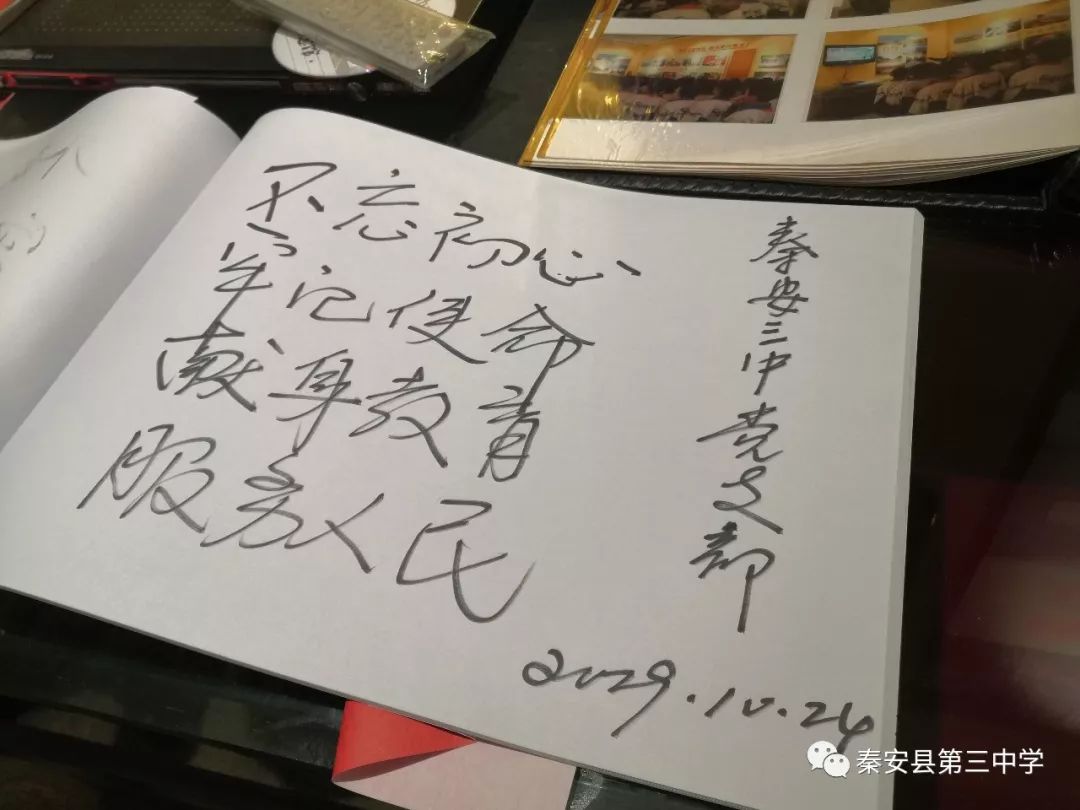 不忘初心
牢记使命
献身教育
服务人民
秦安三中党支部
2029.10.24
秦安县第三中学